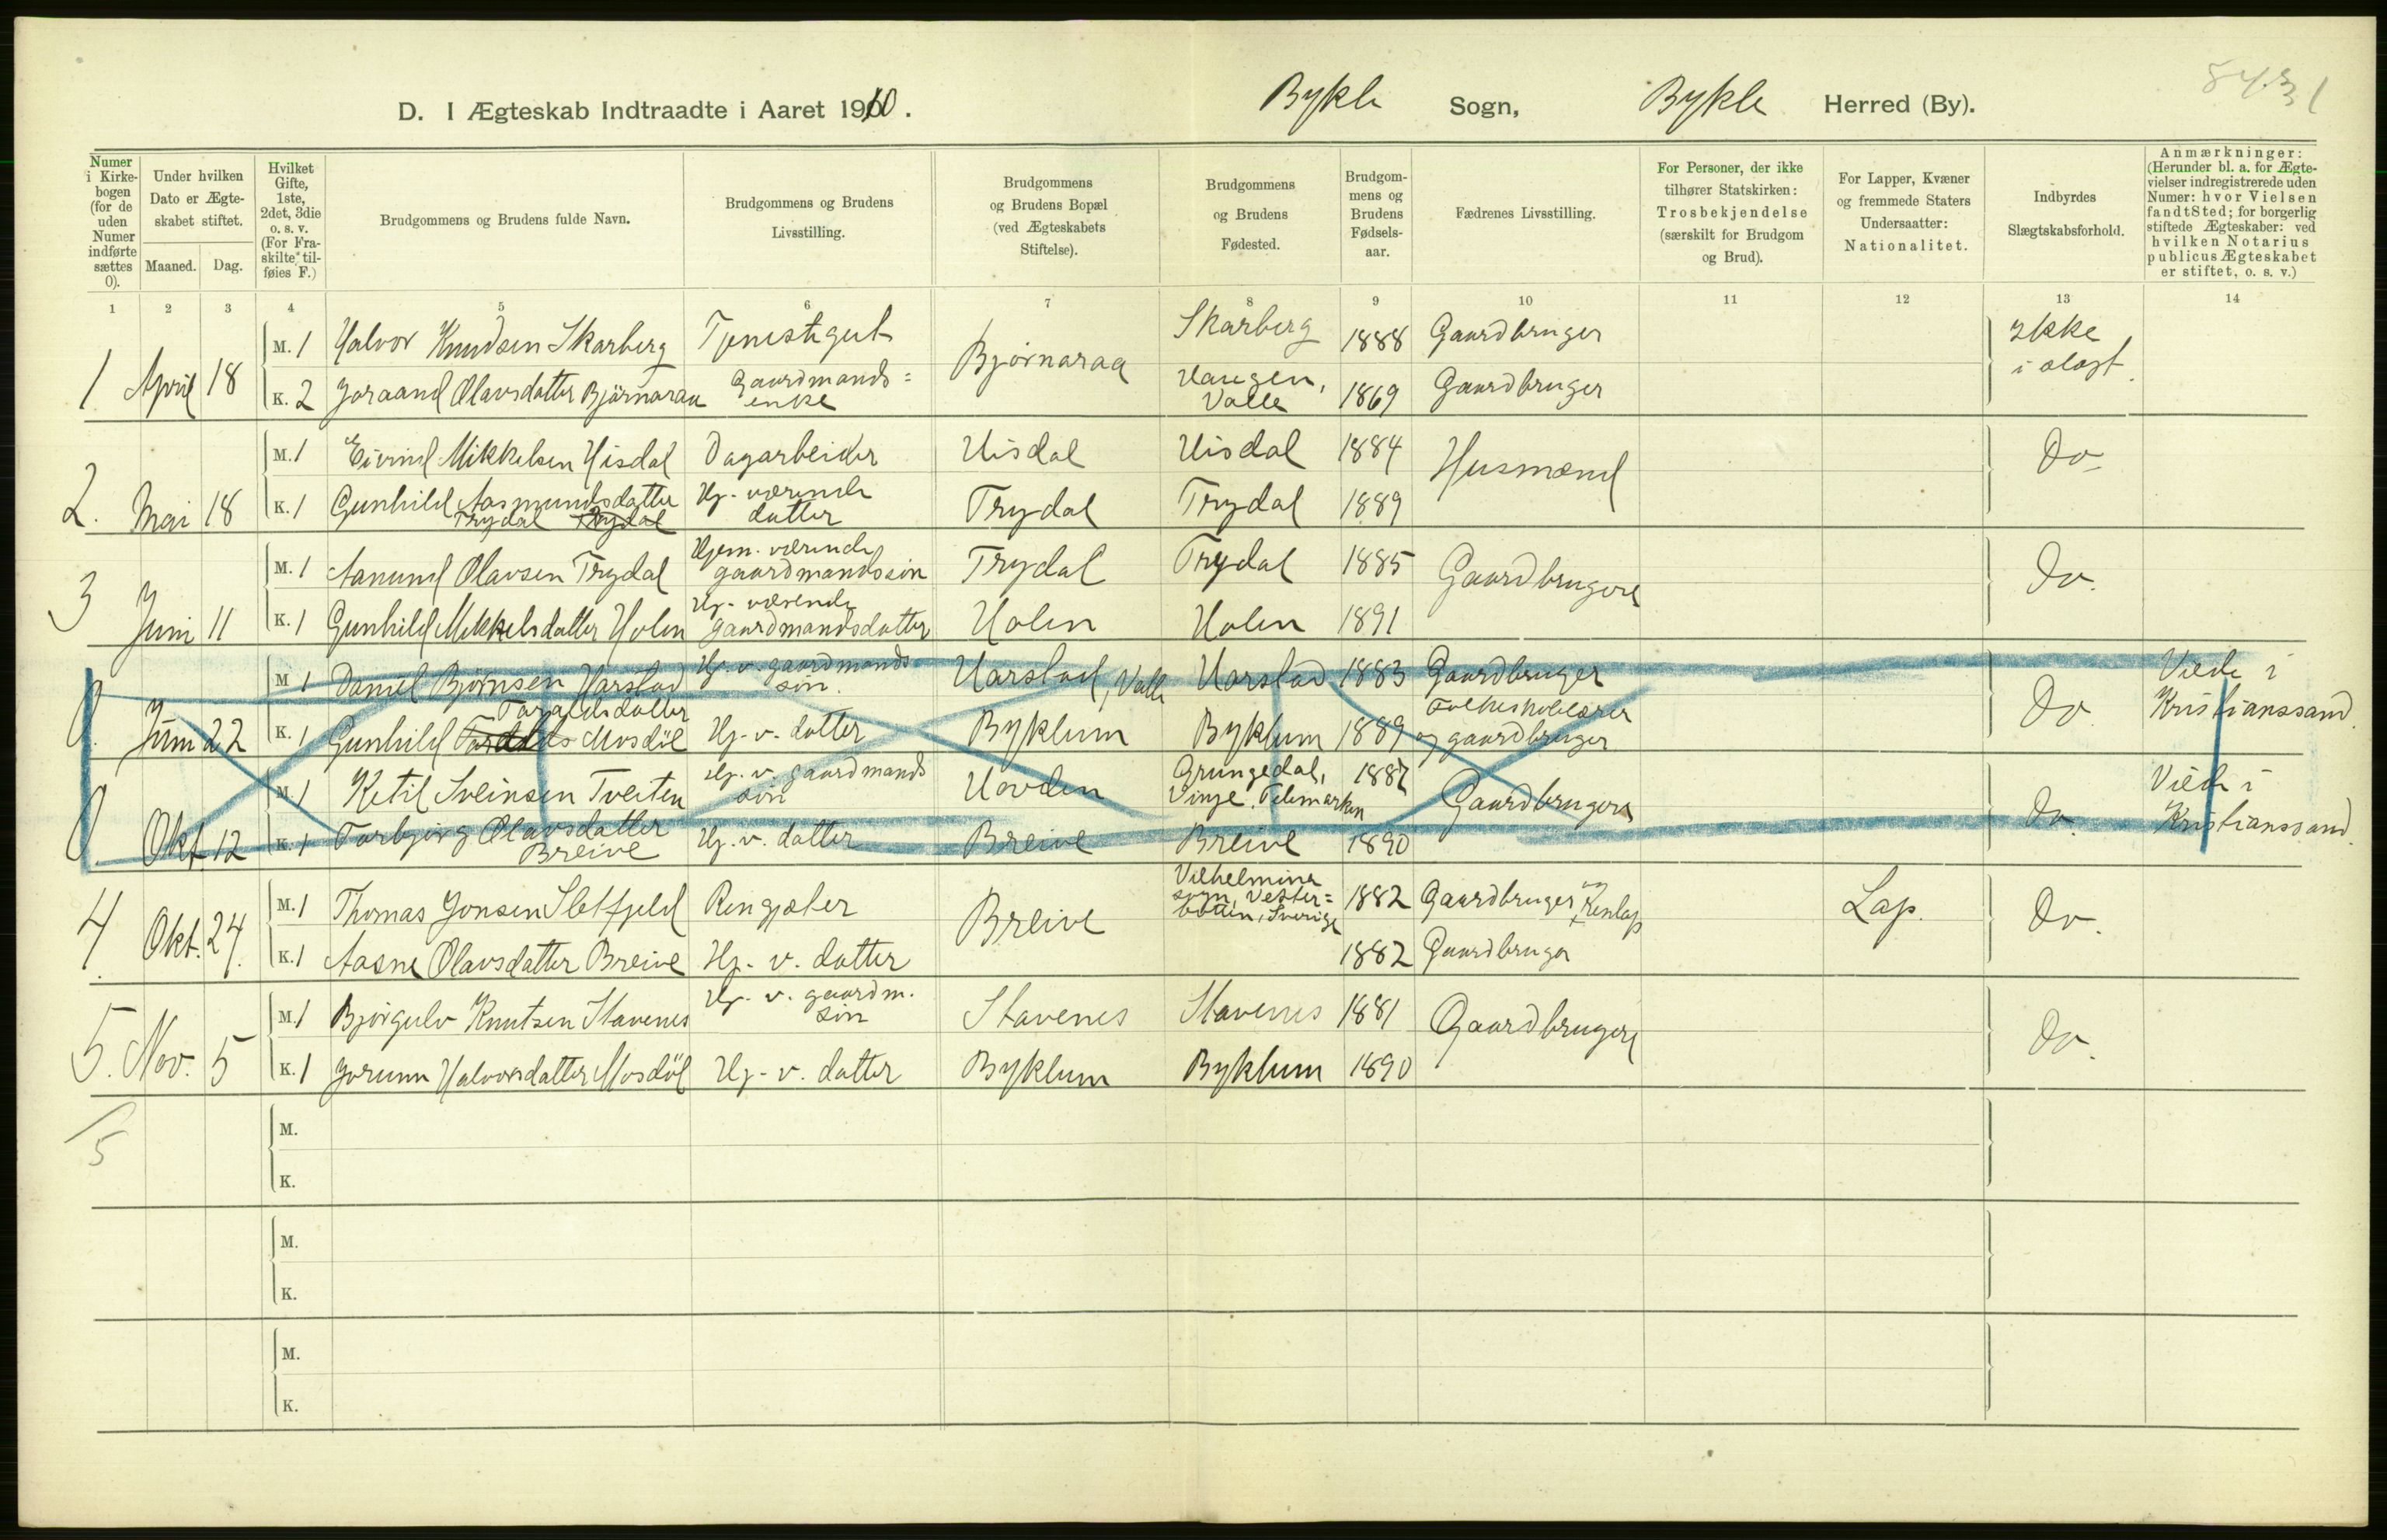 8431
D. I Ægteskab Indtraadte i Aaret 1910. Bykle Sogn, Bykle Herred (By).
Numer i Kirkebogen (for de uden Numer indførte sættes 0).
Under hvilken Dato er Ægteskabet stiftet.
Maaned. Dag.
Hvilket Gifte, 1ste, 2det, 3die o. s. v. (For Fraskilte tilføies F.)
Brudgommens og Brudens fulde Navn.
Brudgommens og Brudens Livsstilling.
Brudgommens og Brudens Bopæl (ved Ægteskabets Stiftelse).
Brudgommens og Brudens Fødested.
Brudgommens og Brudens Fødselsaar.
Fædrenes Livsstilling.
For Personer, der ikke tilhører Statskirken: Trosbekjendelse (særskilt for Brudgom og Brud).
For Lapper, Kvæner og fremmede Staters Undersaatter: Nationalitet.
Indbyrdes Slægtskabsforhold.
Anmærkninger: (Herunder bl. a. for Ægtevielser indregistrerede uden Numer: hvor Vielsen fandt Sted; for borgerlig stiftede Ægteskaber: ved hvilken Notarius publicus Ægteskabet er stiftet, o. s. v.)
1 2 3 4 5 6 7 8 9 10 11 12 13 14
1 April 18 M. 1 Halvor Knudsen Skarberg Tjenestegut Bjørnaraa Skarberg 1888 Gaardbruger Ikke i slægt.
K. 2 Joraand Olavsdatter Björnaraa Gaardmands= enke Haugen, Valle 1869 Gaardbruger
2. Mai 18 M. 1 Eivind Mikkelsen Hisdal Dagarbeider Hisdal Hisdal 1884 Husmænd Do
K. 1 Gunhild Aasmundsdatter Trydal Trydal Hj. værende datter Trydal Trydal 1889
3 Juni 11 M. 1 Aanund Olavsen Trydal Hjem. værende gaardmandssön Trydal Trydal 1885 Gaardbrugere Do.
K. 1 Gunhild Mikkelsdatter Holen Hj. værende gaardmandsdatter Holen Holen 1891
0. Juni 22 M 1 Daniel Bjørnsen Harstad Hj. v. gaardmands sön. Harstad, Valle Harstad 1883 Gaardbruger Do Viede i Kristianssand.
K. 1 Gunhild Taraldsdatter Mosdöl Hj. v. datter Byklum Byklum 1889 Folkeskolelærer og gaardbruger
0. Okt. 12 M. 1 Ketil Sveinsen Tveiten Hj. v. gaardmands sön Hovden Grungedal, Vinje, Telemarken 1887 Gaardbrugere Do. Viede i Kristianssand.
K. 1 Torbjørg Olavsdatter Breive Hj. v. datter Breive Breive 1890
4. Okt. 24. M. 1 Thomas Jonsen Sletfjeld Rengjæter Breive Vilhelmina sogn, Vester= botten, Sverige 1882 Gaardbruger og Renlap Lap. Do.
K. 1 Aasne Olavsdatter Breive Hj. v. datter 1882 Gaardbruger
5. Nov. 5 M. 1 Bjørgulv Knutsen Stavenes Hj. v. gaardm. sön Stavenes Stavenes 1881 Gaardbrugere Do.
K. 1 Jorunn Halvorsdatter Mosdöl Hj. v. datter Byklum Byklum 1890
5
M.
K.
M.
K.
M.
K.